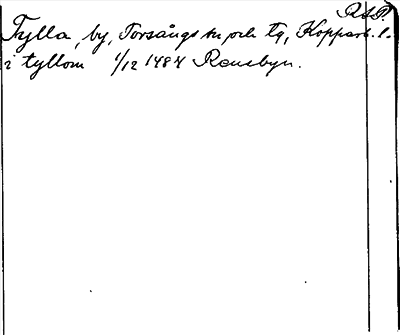 RAP.
Tylla, by, Torsångs sn och tg, Kopparb. l.
i tyllom 1/12 1484 Romebyn.